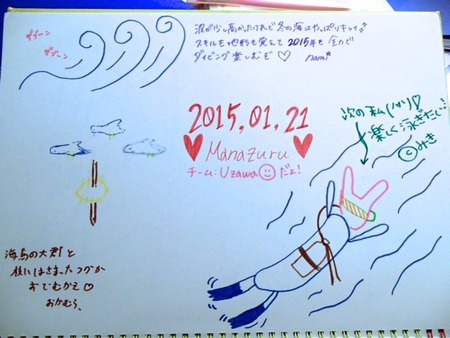 ザブーン
ザブーン
波が少し高かったけれど冬の海はやっぱりキレイ。
スキルも地形も覚えて2015年も全力で
ダイビング楽しむぞ♡ nami
2015.01.21
Manazuru
チーム:Uzawaだよ!
次の私(ハリ)♡
楽しく泳ぎたい!
©みき
海鳥の大群と
柱にはさまったフグが
おでむかえ♡
おかむら、